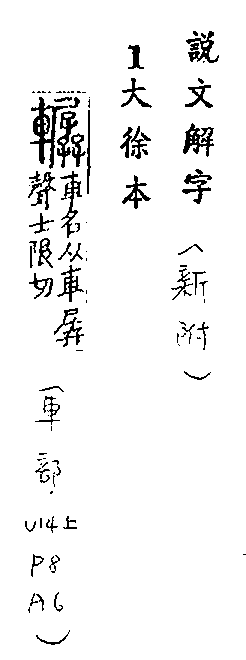 說文解字(新附)
1大徐本
轏車名从車孱
聲士限切
(車部.
V14上
P8
A6)